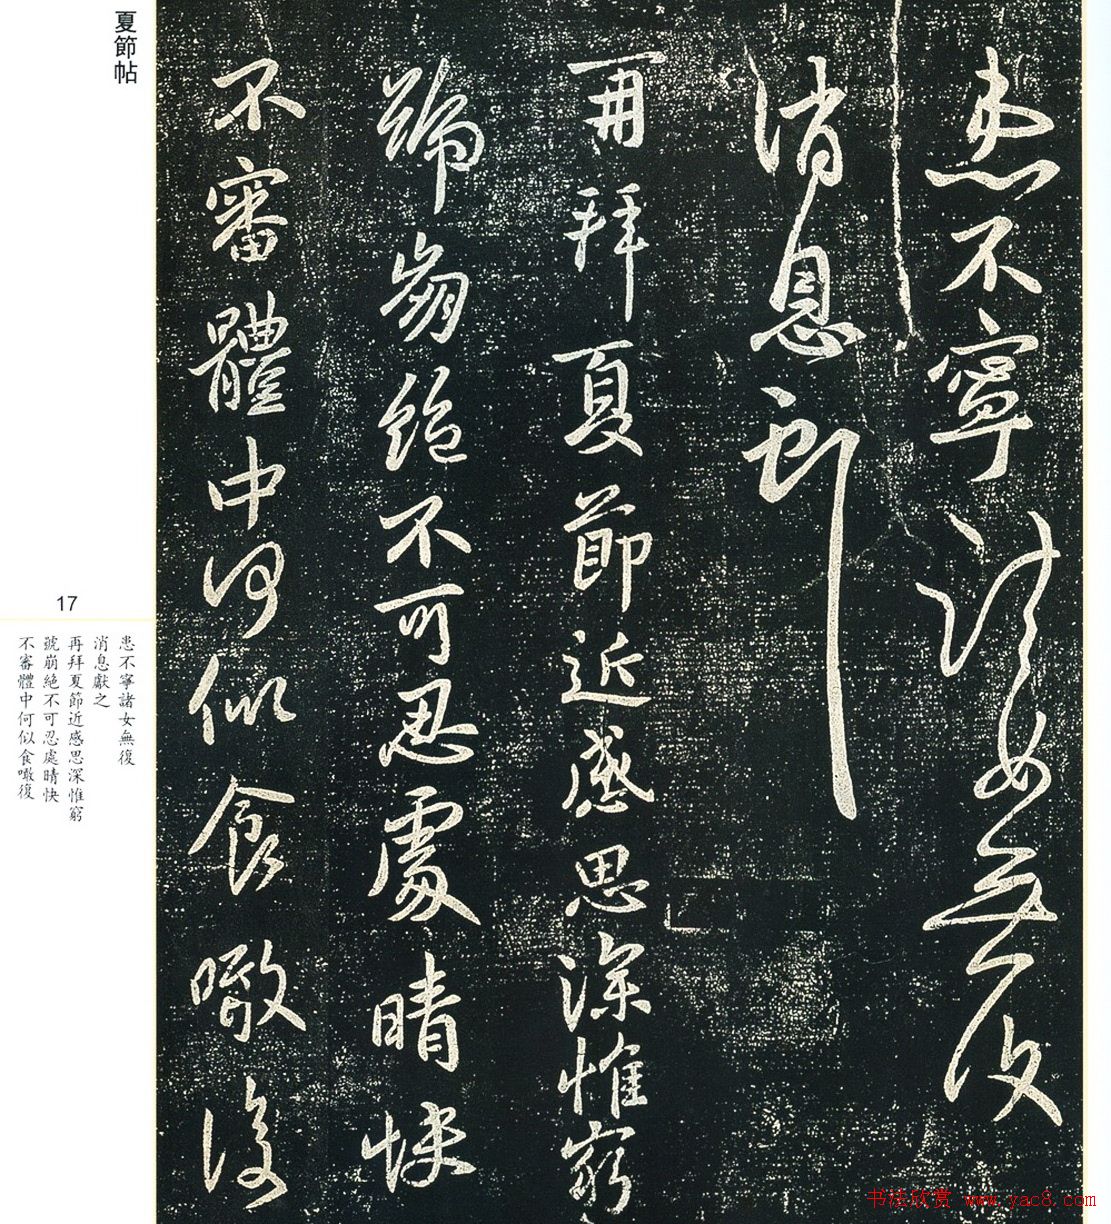 患不寧諸女無復
消息獻之
再拜夏節近感思深惟窮
號崩絕不可忍處晴快
不審體中何似食噉復
夏節帖
17
患不寧諸女無復
消息獻之
再拜夏節近感思深惟窮
號崩絕不可忍處晴快
不審體中何似食噉復
书法欣赏 www.yac8.com